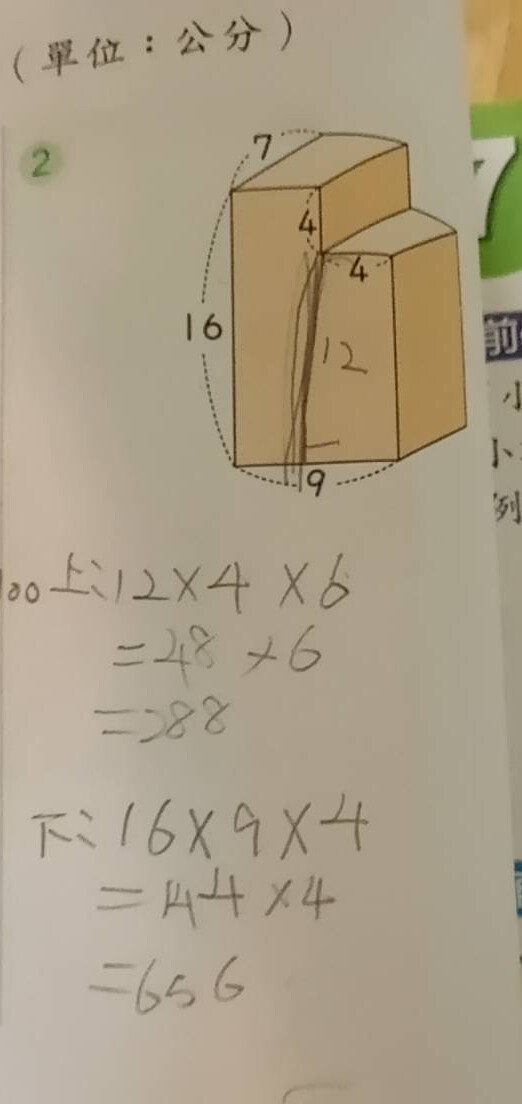 (單位：公分)
2
7
4
4
16
12
9
100 上：12×4×6
=48×6
=288
下：16×9×4
=144×4
=656
7
前
小
小
例